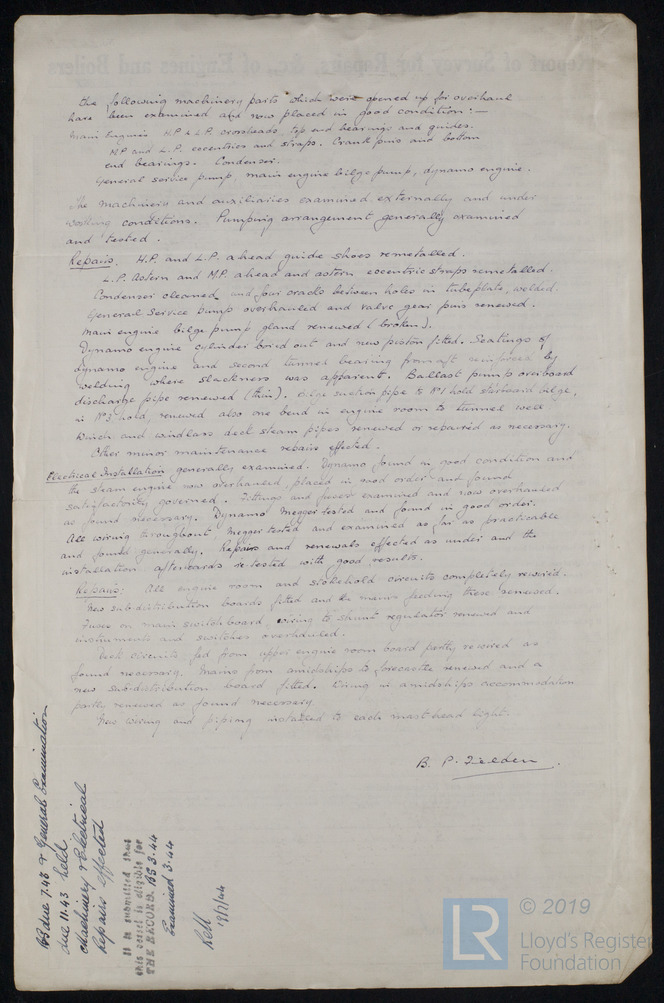 the following machinery parts which were opened up for overhaul
have been examined and now placed in good condition:—
Main Engines H.P. & L.P. crossheads, top end bearings and guides.
M.P. and L.P. eccentrics and straps. Crank pins and bottom
end bearings. Condenser.
General service pump, main engine bilge pump, dynamo engine.
The machinery and auxiliaries examined externally and under
working conditions. Pumping arrangement generally examined
and tested.
Repairs. H.P. and L.P. ahead guide shoes remetalled.
L.P. Astern and M.P. ahead and astern eccentric straps remetalled.
Condenser cleaned and four cracks between holes in tubeplate, welded.
General Service Pump overhauled and valve gear pins renewed.
Main engine bilge pump gland renewed (broken).
Dynamo engine cylinder bored out and new piston fitted. Seatings of
dynamo engine and second tunnel bearing from aft reinforced by
welding where slackness was apparent. Ballast pump overboard
discharge pipe renewed (thin). Bilge suction pipe to No 1 hold starboard bilge,
in No 3 hold, renewed also one bend in engine room to tunnel well
Winch and windlass deck steam pipes renewed or repaired as necessary.
Other minor maintenance repairs effected.
Electrical Installation generally examined. Dynamo found in good condition and
the steam engine now overhauled, placed in good order and found
satisfactorily governed. Fittings and fuses examined and now overhauled
as found necessary. Dynamo Megger tested and found in good order.
All wiring throughout Megger tested and examined as far as practicable
and found generally. Repairs and renewals effected as under and the
installation afterwards re-tested with good results.
Repairs: All engine room and stokehold circuits completely rewired.
New sub-distribution boards fitted and the mains feeding these renewed.
Fuses on main switchboard, wiring to shunt regulator renewed and
instruments and switches overhauled.
Deck circuits fed from upper engine room board partly rewired as
found necessary. Mains from amidships to forecastle renewed and a
new sub-distribution board fitted. Wiring in amidships accommodation
partly renewed as found necessary.
New wiring and piping installed to each mast head light.
B. P. Fielden.
BS due 7.43 & General Examination
due 11.43 held
Machinery & Electrical
Repairs effected
It is submitted that
this vessel is eligible for
THE RECORD. BS 3.44
Examined 3.44
19/7/44
LR © 2019
Lloyd's Register
Foundation